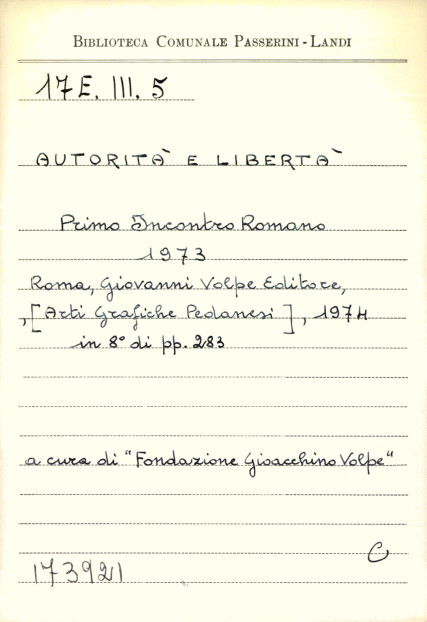 BIBLIOTECA COMUNALE PASSERINI-LANDI
17 E. III. 5
AUTORITÀ E LIBERTÀ
Primo Incontro Romano
1973
Roma, Giovanni Volpe Editore,
,[Arti Grafiche Pedanesi], 1974
in 8° di pp. 283
a cura di "Fondazione Gioacchino Volpe"
C
173921